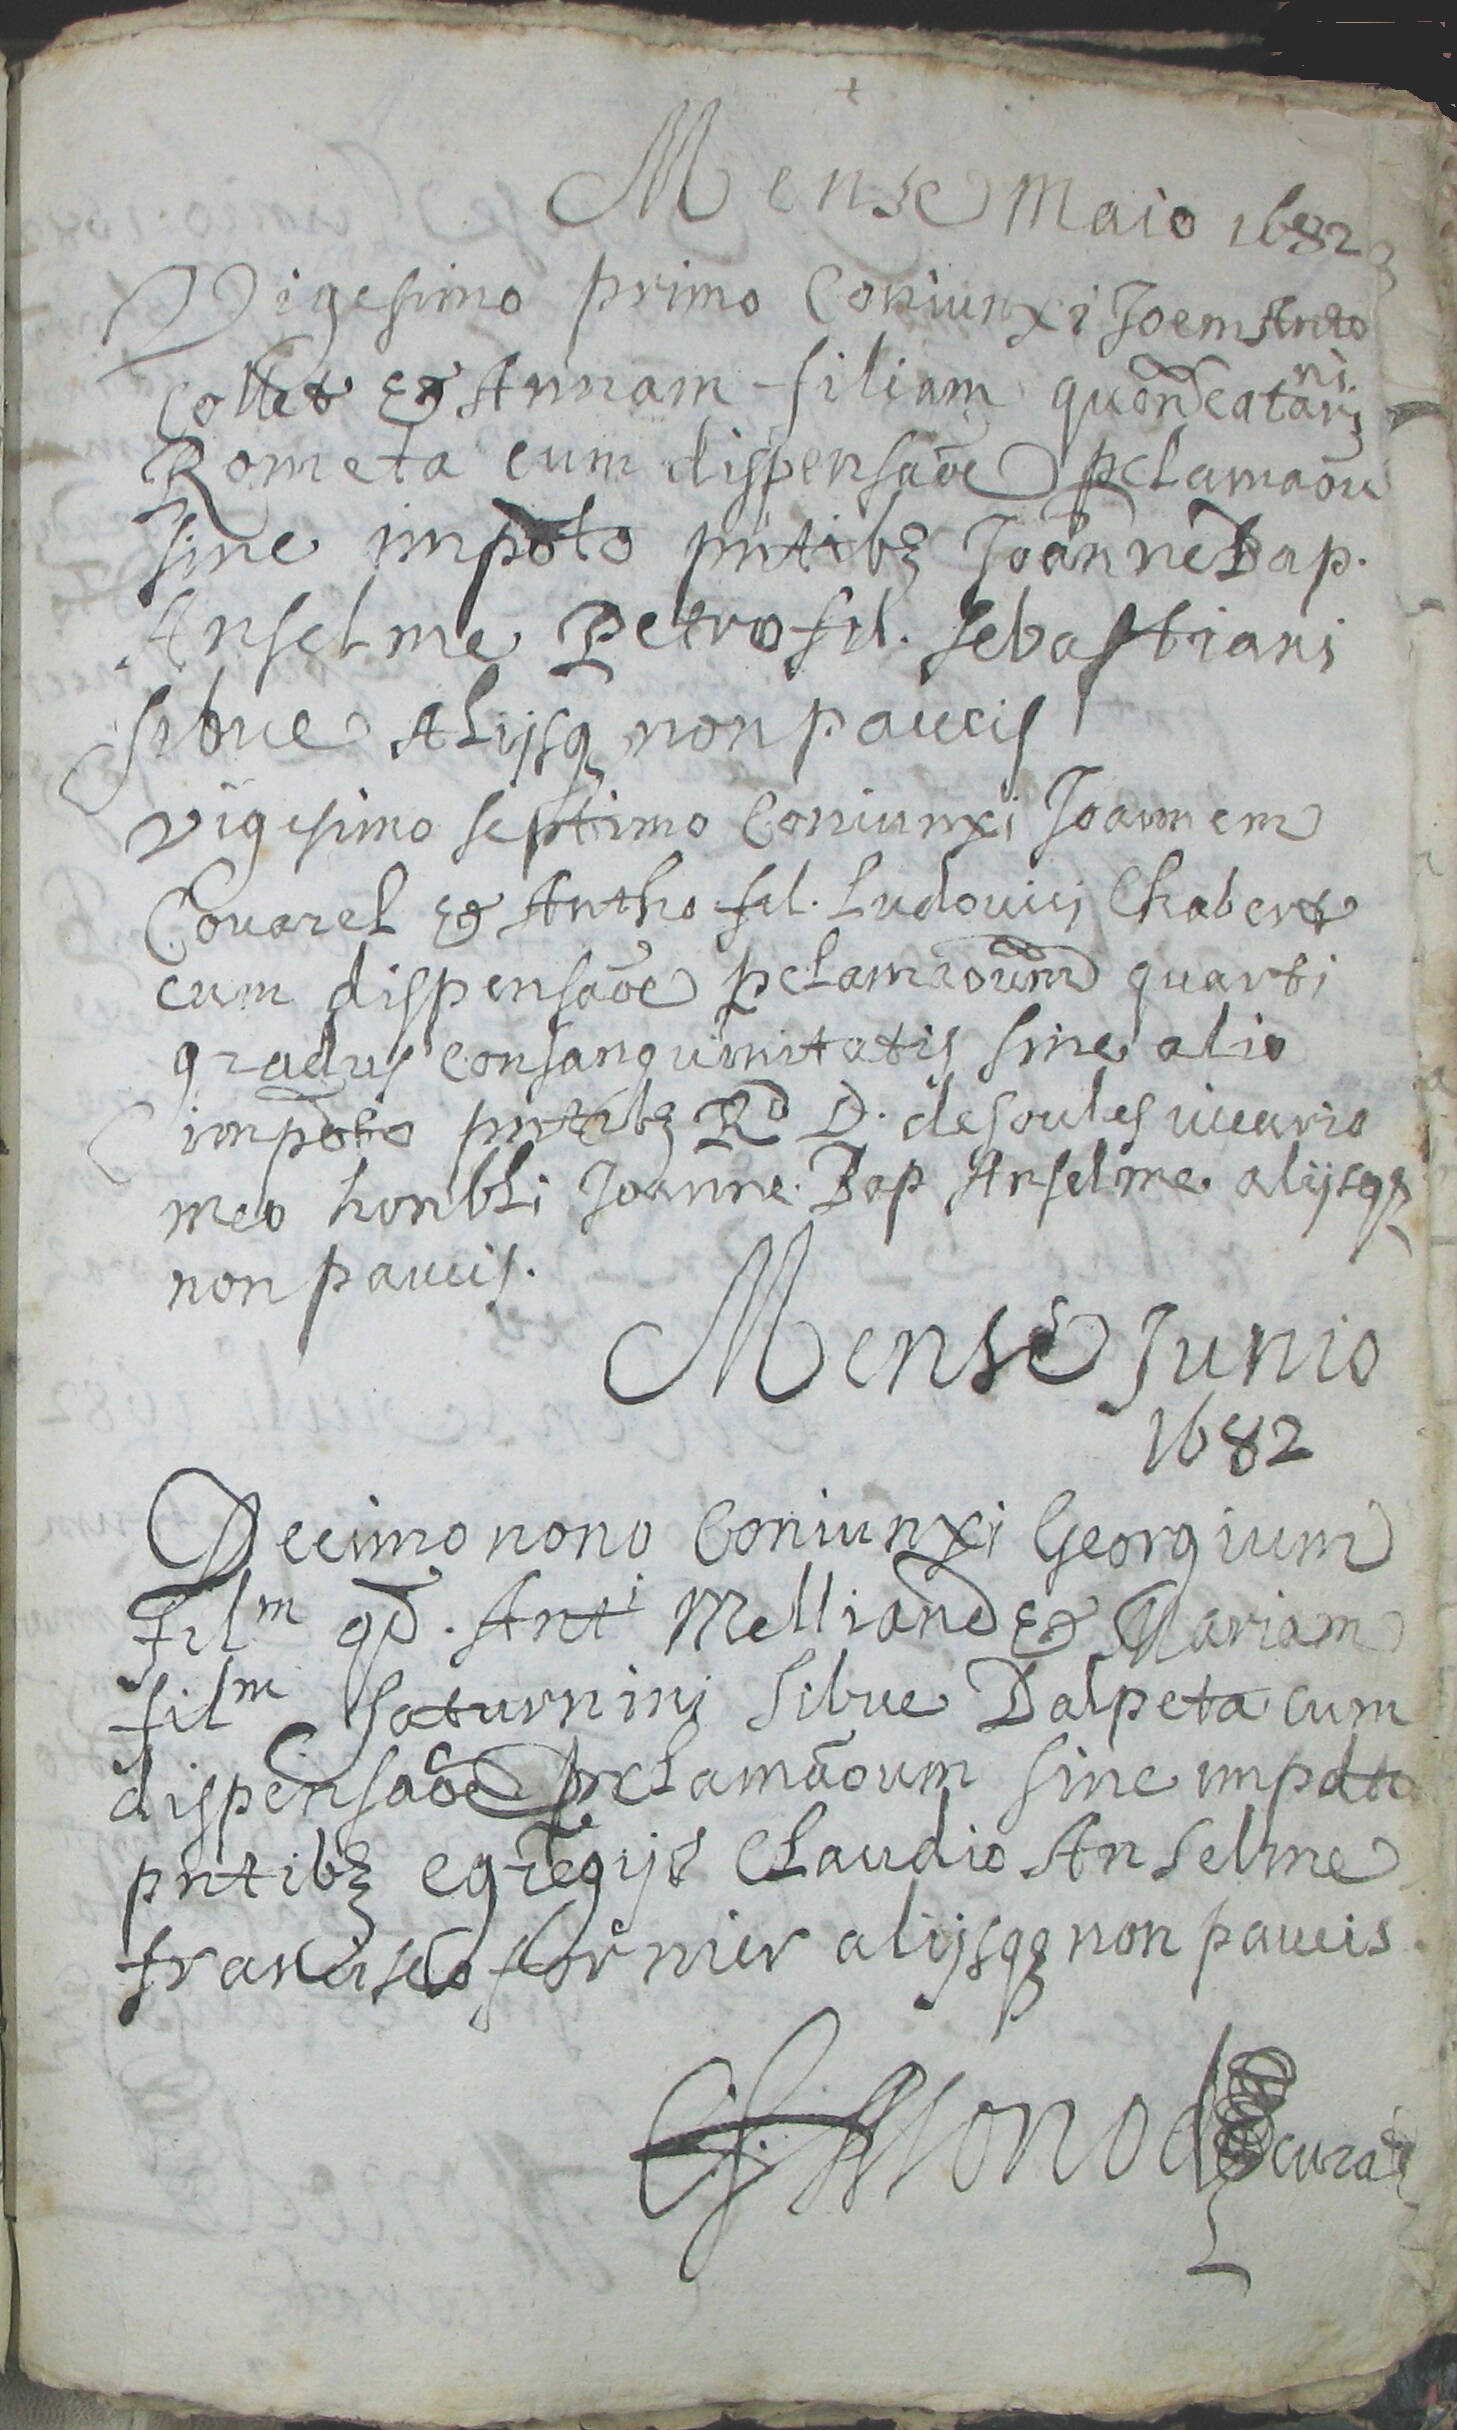 Mense Maio 1682
Vigesimo primo Coniunxi Joem Anto
Collet & Annam filiam quond Catarini
Rometa cum dispensaõe pclamaõu
sine impoto pntibz Joãnne Bap.
Anselme Petro fil. Sebastiani
silue Alijsq non paucis
vigesimo septimo Coniunxi Joannem
Couarel & Antho fil. Ludouici Chabert
cum dispensaõe pclamaõum quarti
gradus consanguinitatis sine alio
impoto pntibz Rd D. desoules vicario
meo honbli Joanne Bap Anselme alijsqz
non paucis.
Mense Junio
1682
Decimo nono Coniunxi Georgium
film qd. Anti Melliand & Mariam
film Saturnini Silue Dalpeta cum
dispensaõe pclamãoum sine impdto
pntibz egregijs Claudio Anselme
francisco fornier alijsqz non paucis.
Monod curat